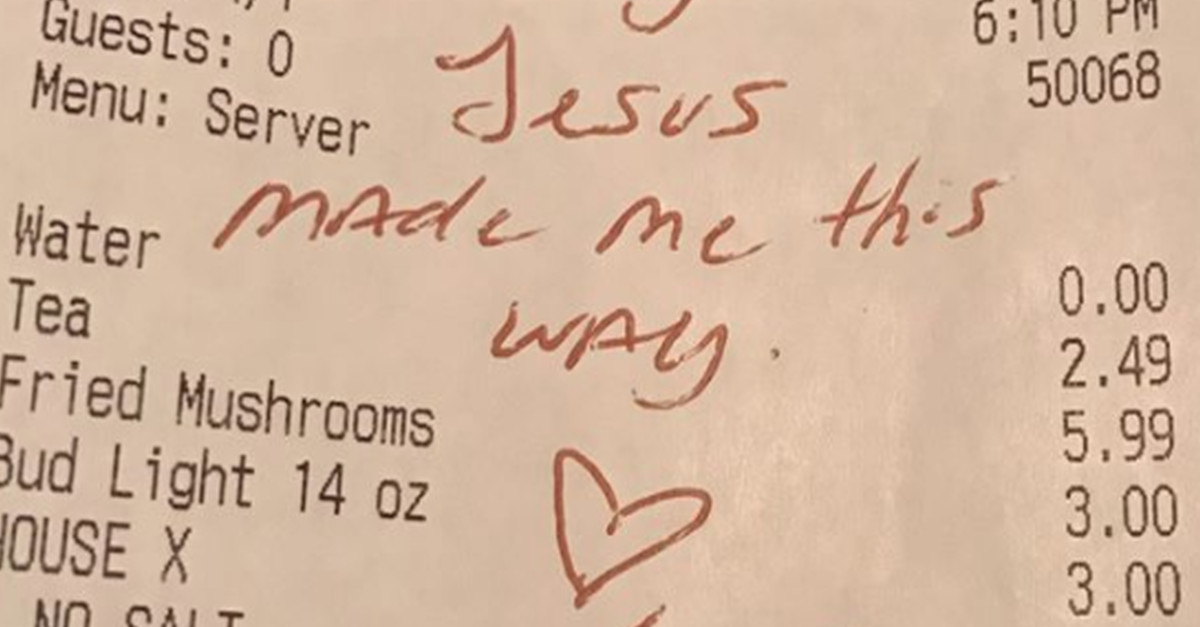 Guests: 0
6:10 PM
Menu: Server
50068
Jesus
made me this
way.
Water 0.00
Tea 2.49
Fried Mushrooms 5.99
Bud Light 14 oz 3.00
HOUSE X 3.00
NO SALT